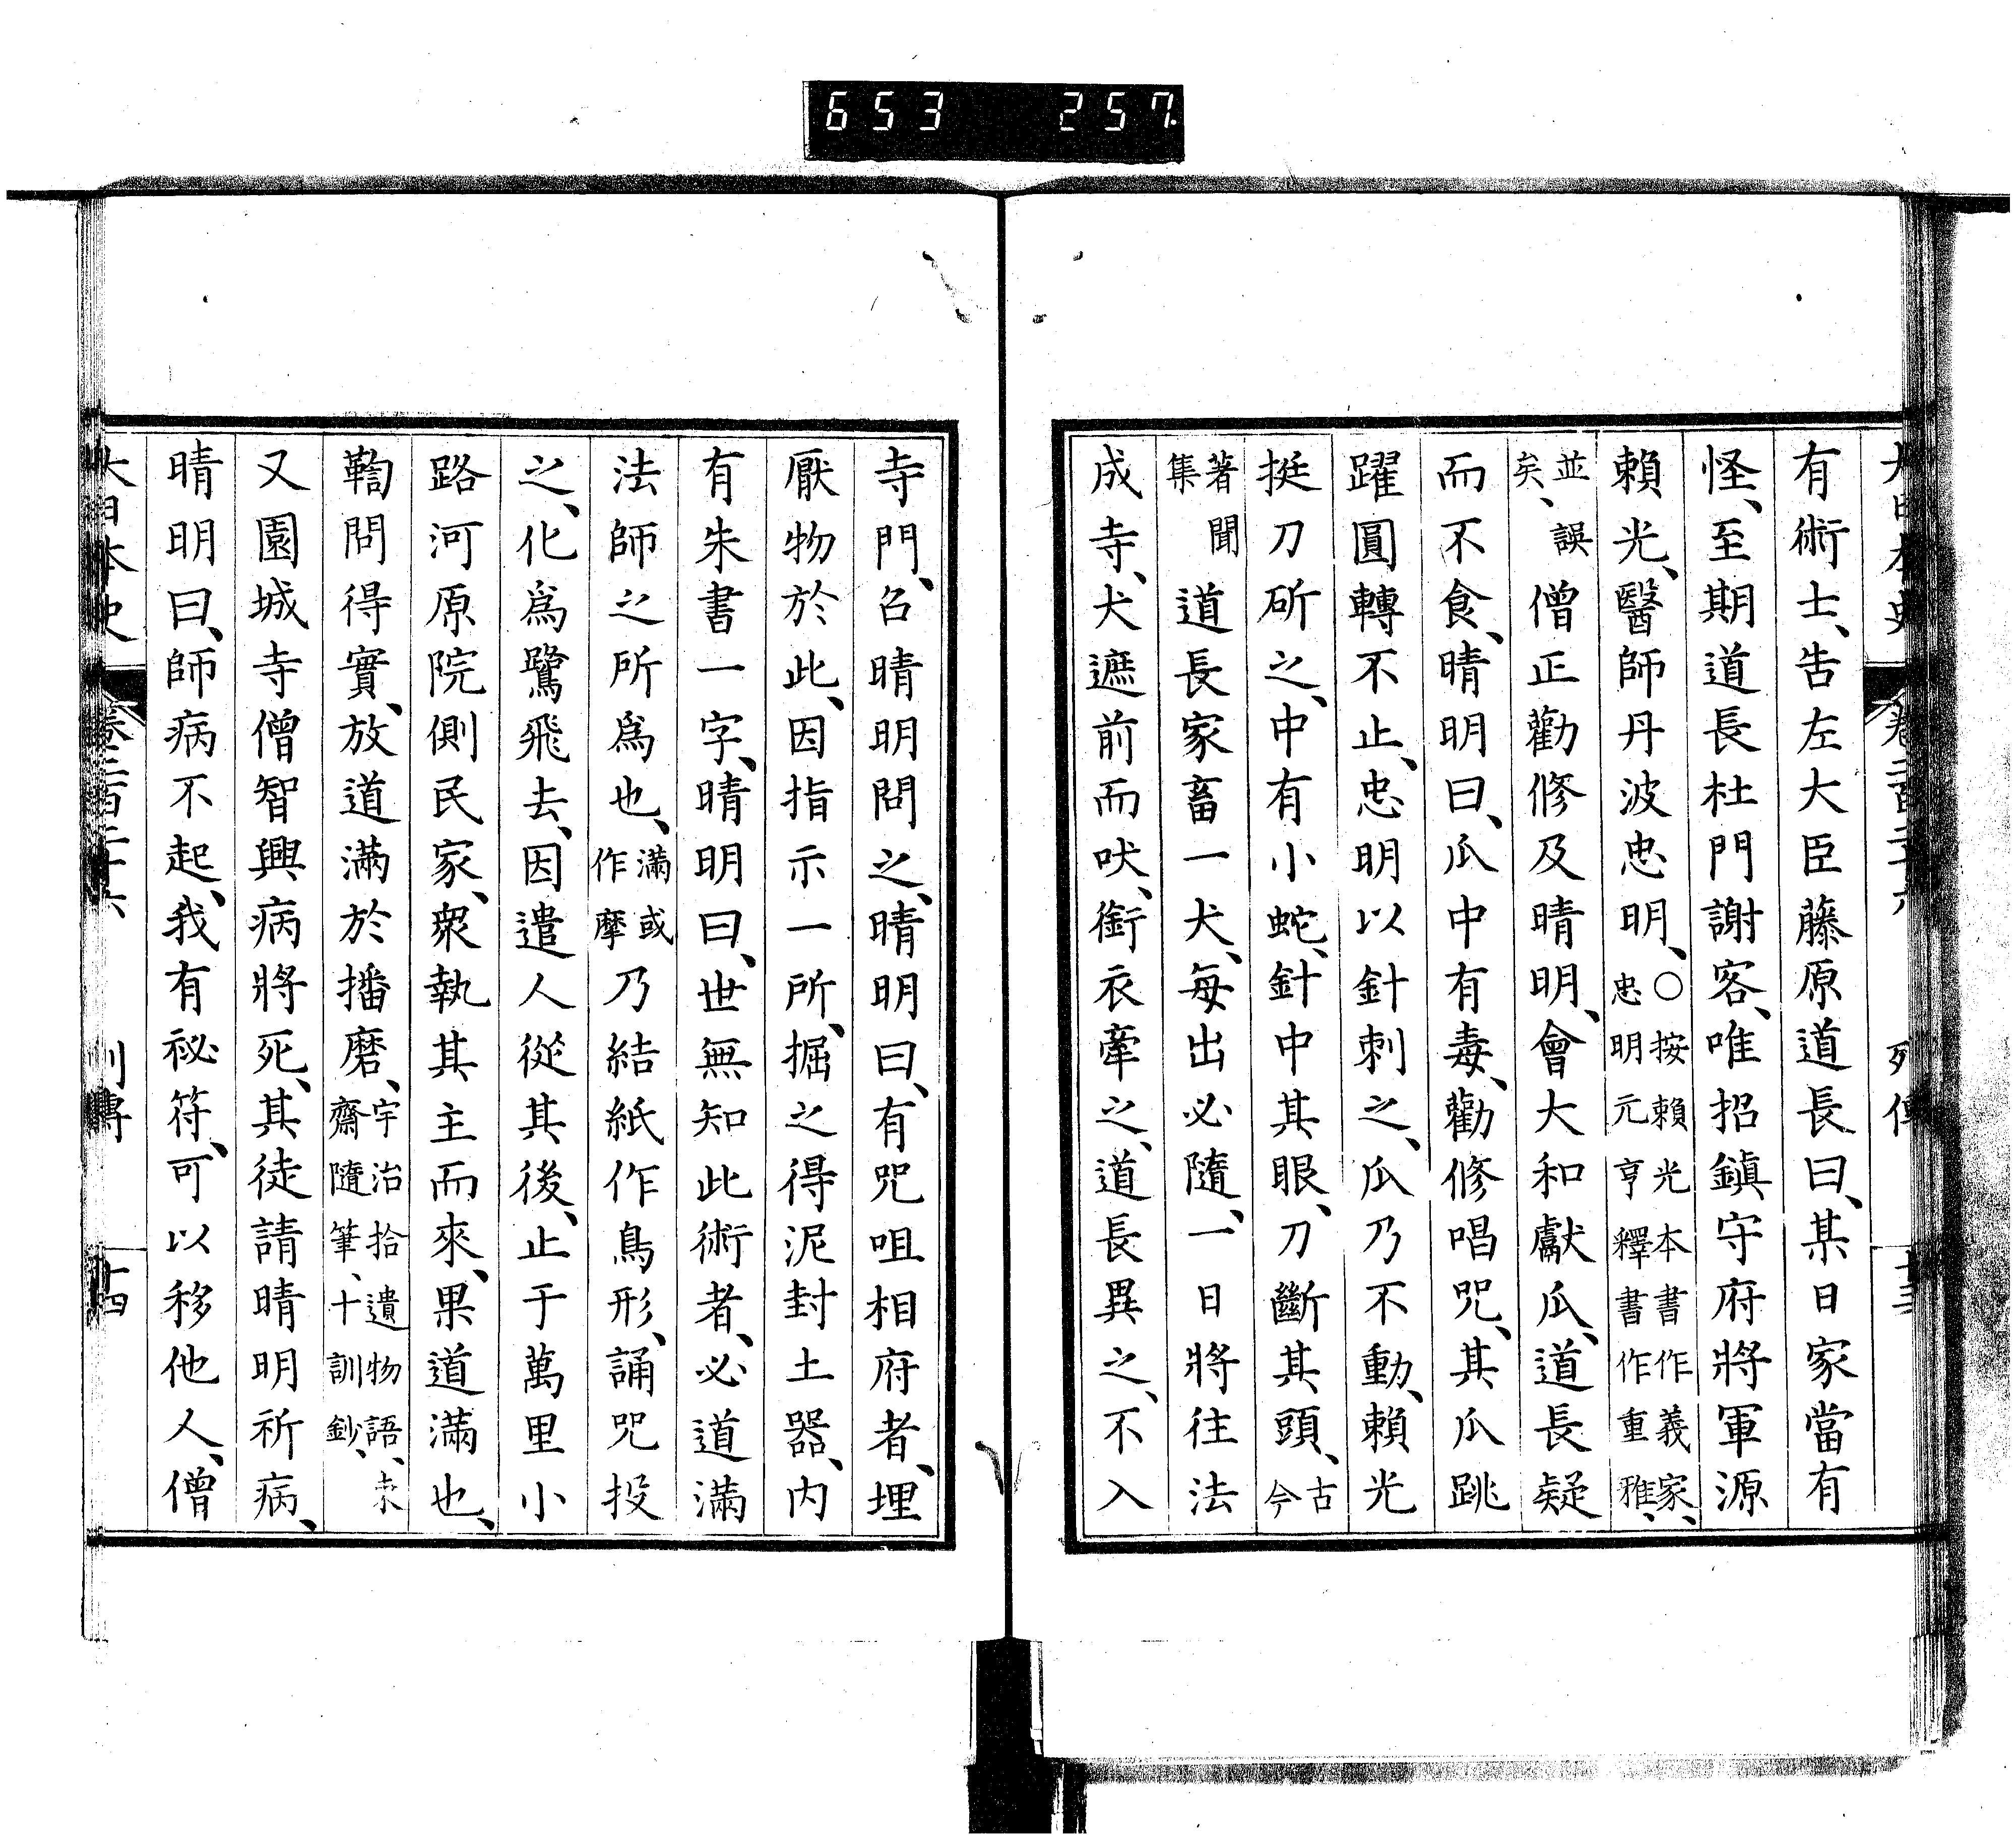 653 257
大日本史 卷二百二十六 列傳 十三
有術士、告左大臣藤原道長曰、某日家當有
怪、至期道長杜門謝客、唯招鎭守府將軍源
賴光、醫師丹波忠明、○按賴光本書作義家、忠明元亨釋書作重雅、
並誤矣、僧正勸修及晴明、會大和獻瓜、道長疑
而不食、晴明曰、瓜中有毒、勸修唱咒、其瓜跳
躍圓轉不止、忠明以針刺之、瓜乃不動、賴光
挺刀斫之、中有小蛇、針中其眼、刀斷其頭、古今
著聞集道長家畜一犬、每出必隨、一日將往法
成寺、犬遮前而吠、銜衣牽之、道長異之、不入
寺門、召晴明問之、晴明曰、有咒咀相府者、埋
厭物於此、因指示一所、掘之得泥封土器、內
有朱書一字、晴明曰、世無知此術者、必道滿
法師之所爲也、滿或作摩乃結紙作鳥形、誦咒投
之、化爲鷺飛去、因遣人從其後、止于萬里小
路河原院側民家、衆執其主而來、果道滿也、
鞫問得實、放道滿於播磨、宇治拾遺物語、東齋隨筆、十訓鈔、
又園城寺僧智興病將死、其徒請晴明祈病、
晴明曰、師病不起、我有祕符、可以移他人、僧
大日本史 卷二百二十六 列傳 十四